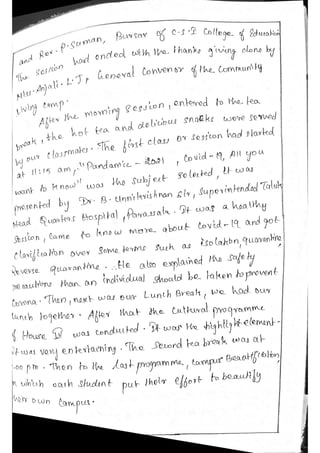 and Rev. P. Suman, Bursar of C.S.I College of Education
The session had ended with the thanks giving done by
Miss. Anjali. L.J, General Convenor of the Community
Living Camp.
After the morning session, entered to the tea
break, the hot tea and delicious snacks were served
by our classmates. The first class or session had started
at 11:15 am, "Pandamic - 2021, Covid-19, All you
want to know" was the subject selected, It was
presented by Dr. B. Unnikrishnan Sir, Superintended Taluk
Head Quarters Hospital, Parassala. It was a healthy
Session, came to know more about Covid-19 and got
clarification over some terms such as isolation, quarantine,
reverse quarantine. He also explained the safety
precautions than an individual should be taken to prevent
Corona. Then, next was our Lunch Break, we had our
Lunch together. After that the Cultural programme
of House IV was conducted. It was the highlight element.
it was very entertaining. The second tea break was at
:00 pm. Then to the last programme, Campus Beautification,
n which each student put their effort to beautify
heir own campus.